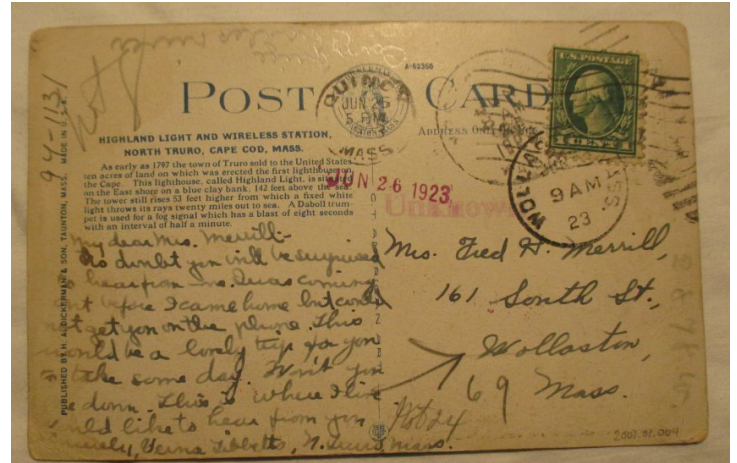 A-60350
POST CARD
QUINCY
JUN 25
5 PM
MASS
U.S. POSTAGE
1 CENT 1
HIGHLAND LIGHT AND WIRELESS STATION,
NORTH TRURO, CAPE COD, MASS.
As early as 1797 the town of Truro sold to the United States
ten acres of land on which was erected the first lighthouse on
the Cape. This lighthouse, called Highland Light, is situated
on the East shore on a blue clay bank, 142 feet above the sea.
The tower still rises 53 feet higher from which a fixed white
light throws its rays twenty miles out to sea. A Daboll trum-
pet is used for a fog signal which has a blast of eight seconds
with an interval of half a minute.
JUN 26 1923
Unknown
9 AM
23
94-1131
PUBLISHED BY H. A. DICKERMAN & SON, TAUNTON, MASS. MADE IN U.S.A.
My dear Mrs. Merrill:-
No doubt you will be surprised
to hear from me. Was coming
before I came home but could
not get you on the phone. This
would be a lovely trip for you
to take some day. Won't you
come down. This is where I live
would like to hear from you
Sincerely, Verna Tibbetts, N. Truro, Mass.
Mrs. Fred H. Merrill,
161 South St.,
Wollaston,
69 Mass.
Not 24
2007.01.004